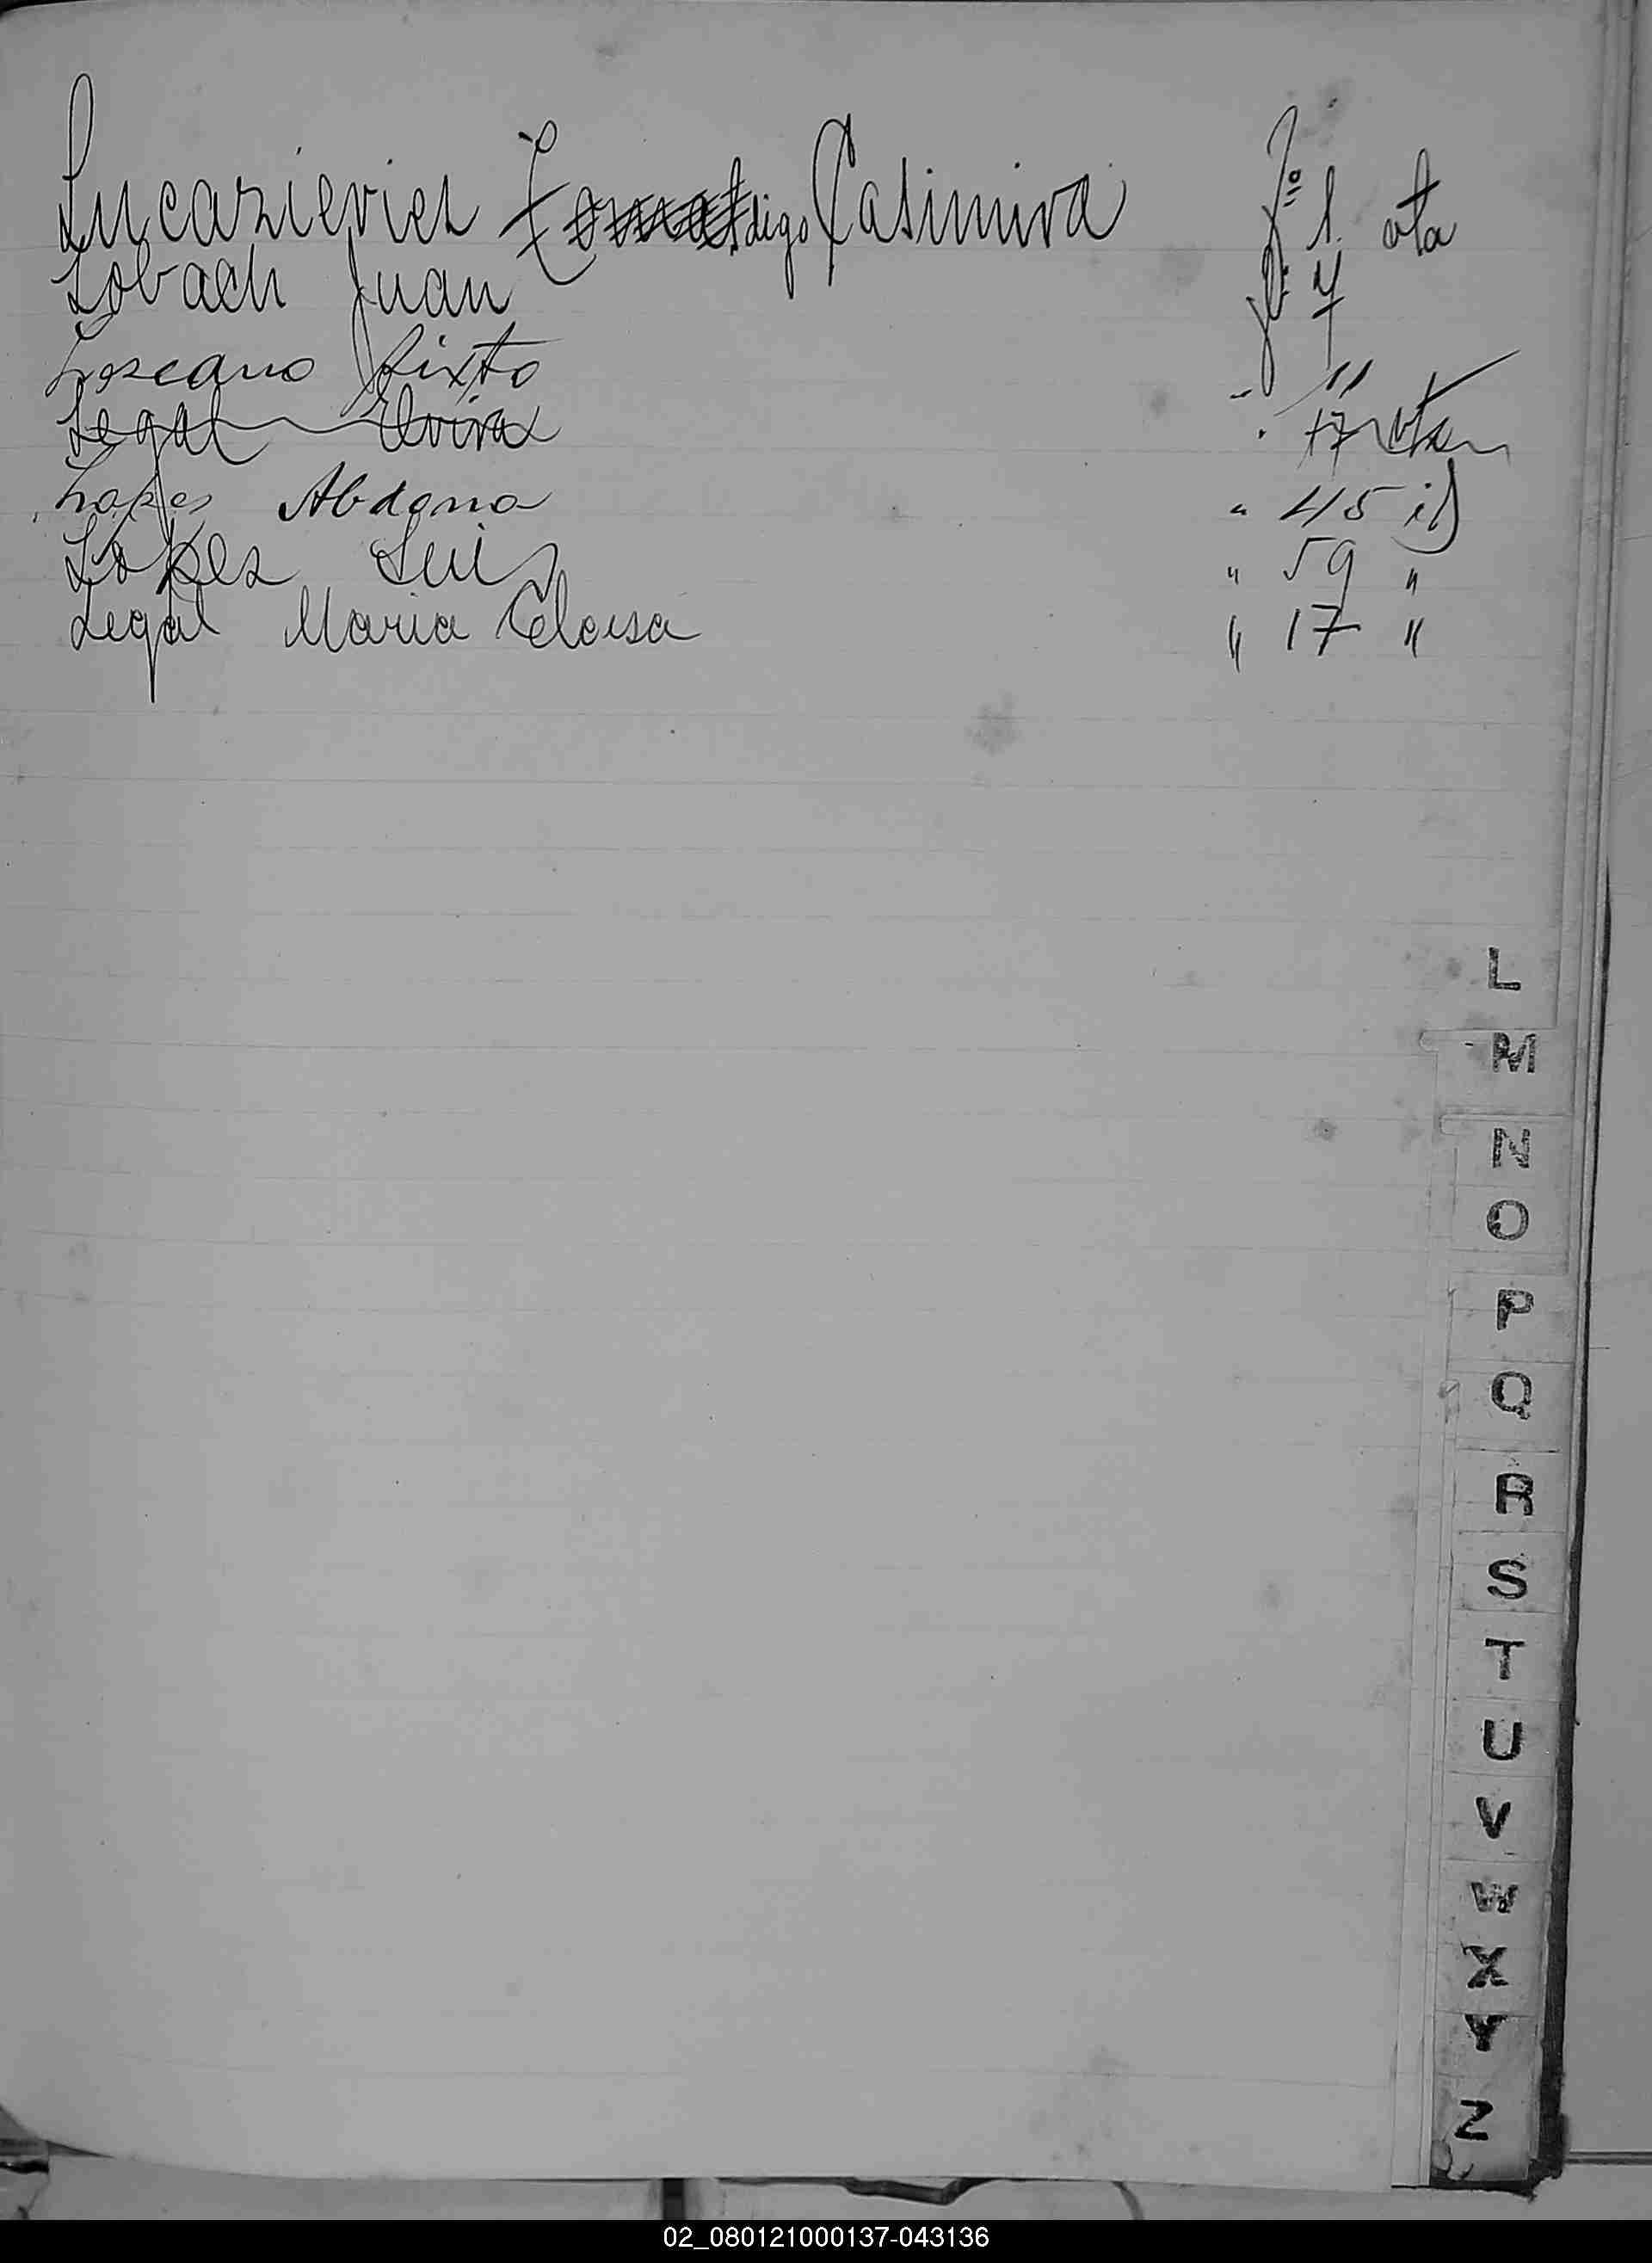 Lucazievier digo Casimira Fº 1. vta
Lobach Juan Fº 4
Lezcano Sixto " 11
Legal Elvira " 17 vta
Lopes Abdona " 45 id
Lopez Luis " 59 "
Legal Maria Eloisa " 17 "
L
M
N
O
P
Q
R
S
T
U
V
W
X
Y
Z
02_080121000137-043136